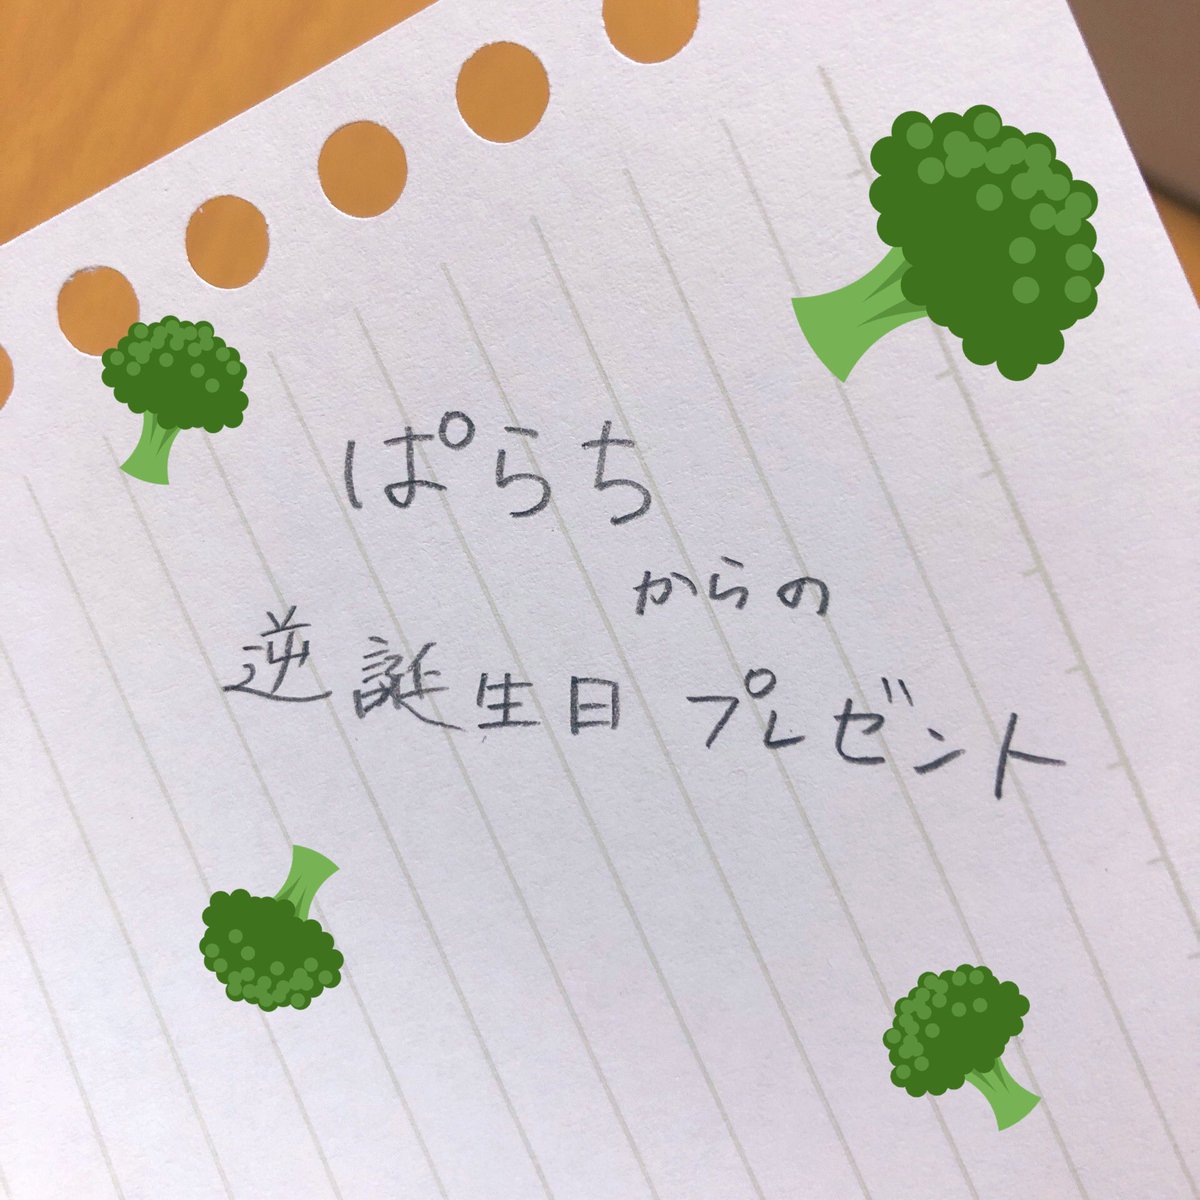 ぱらち
からの
逆誕生日プレゼント